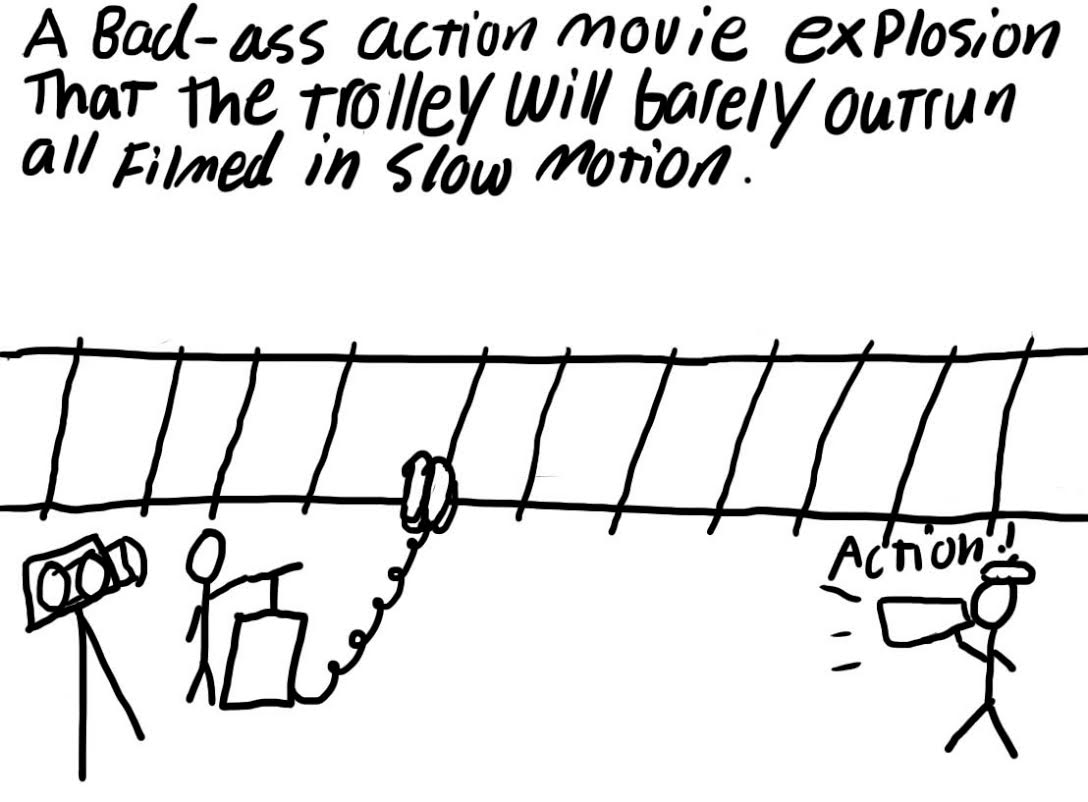 A Bad-ass action movie explosion
That the trolley will barely outrun
all Filmed in slow motion.
Action!!